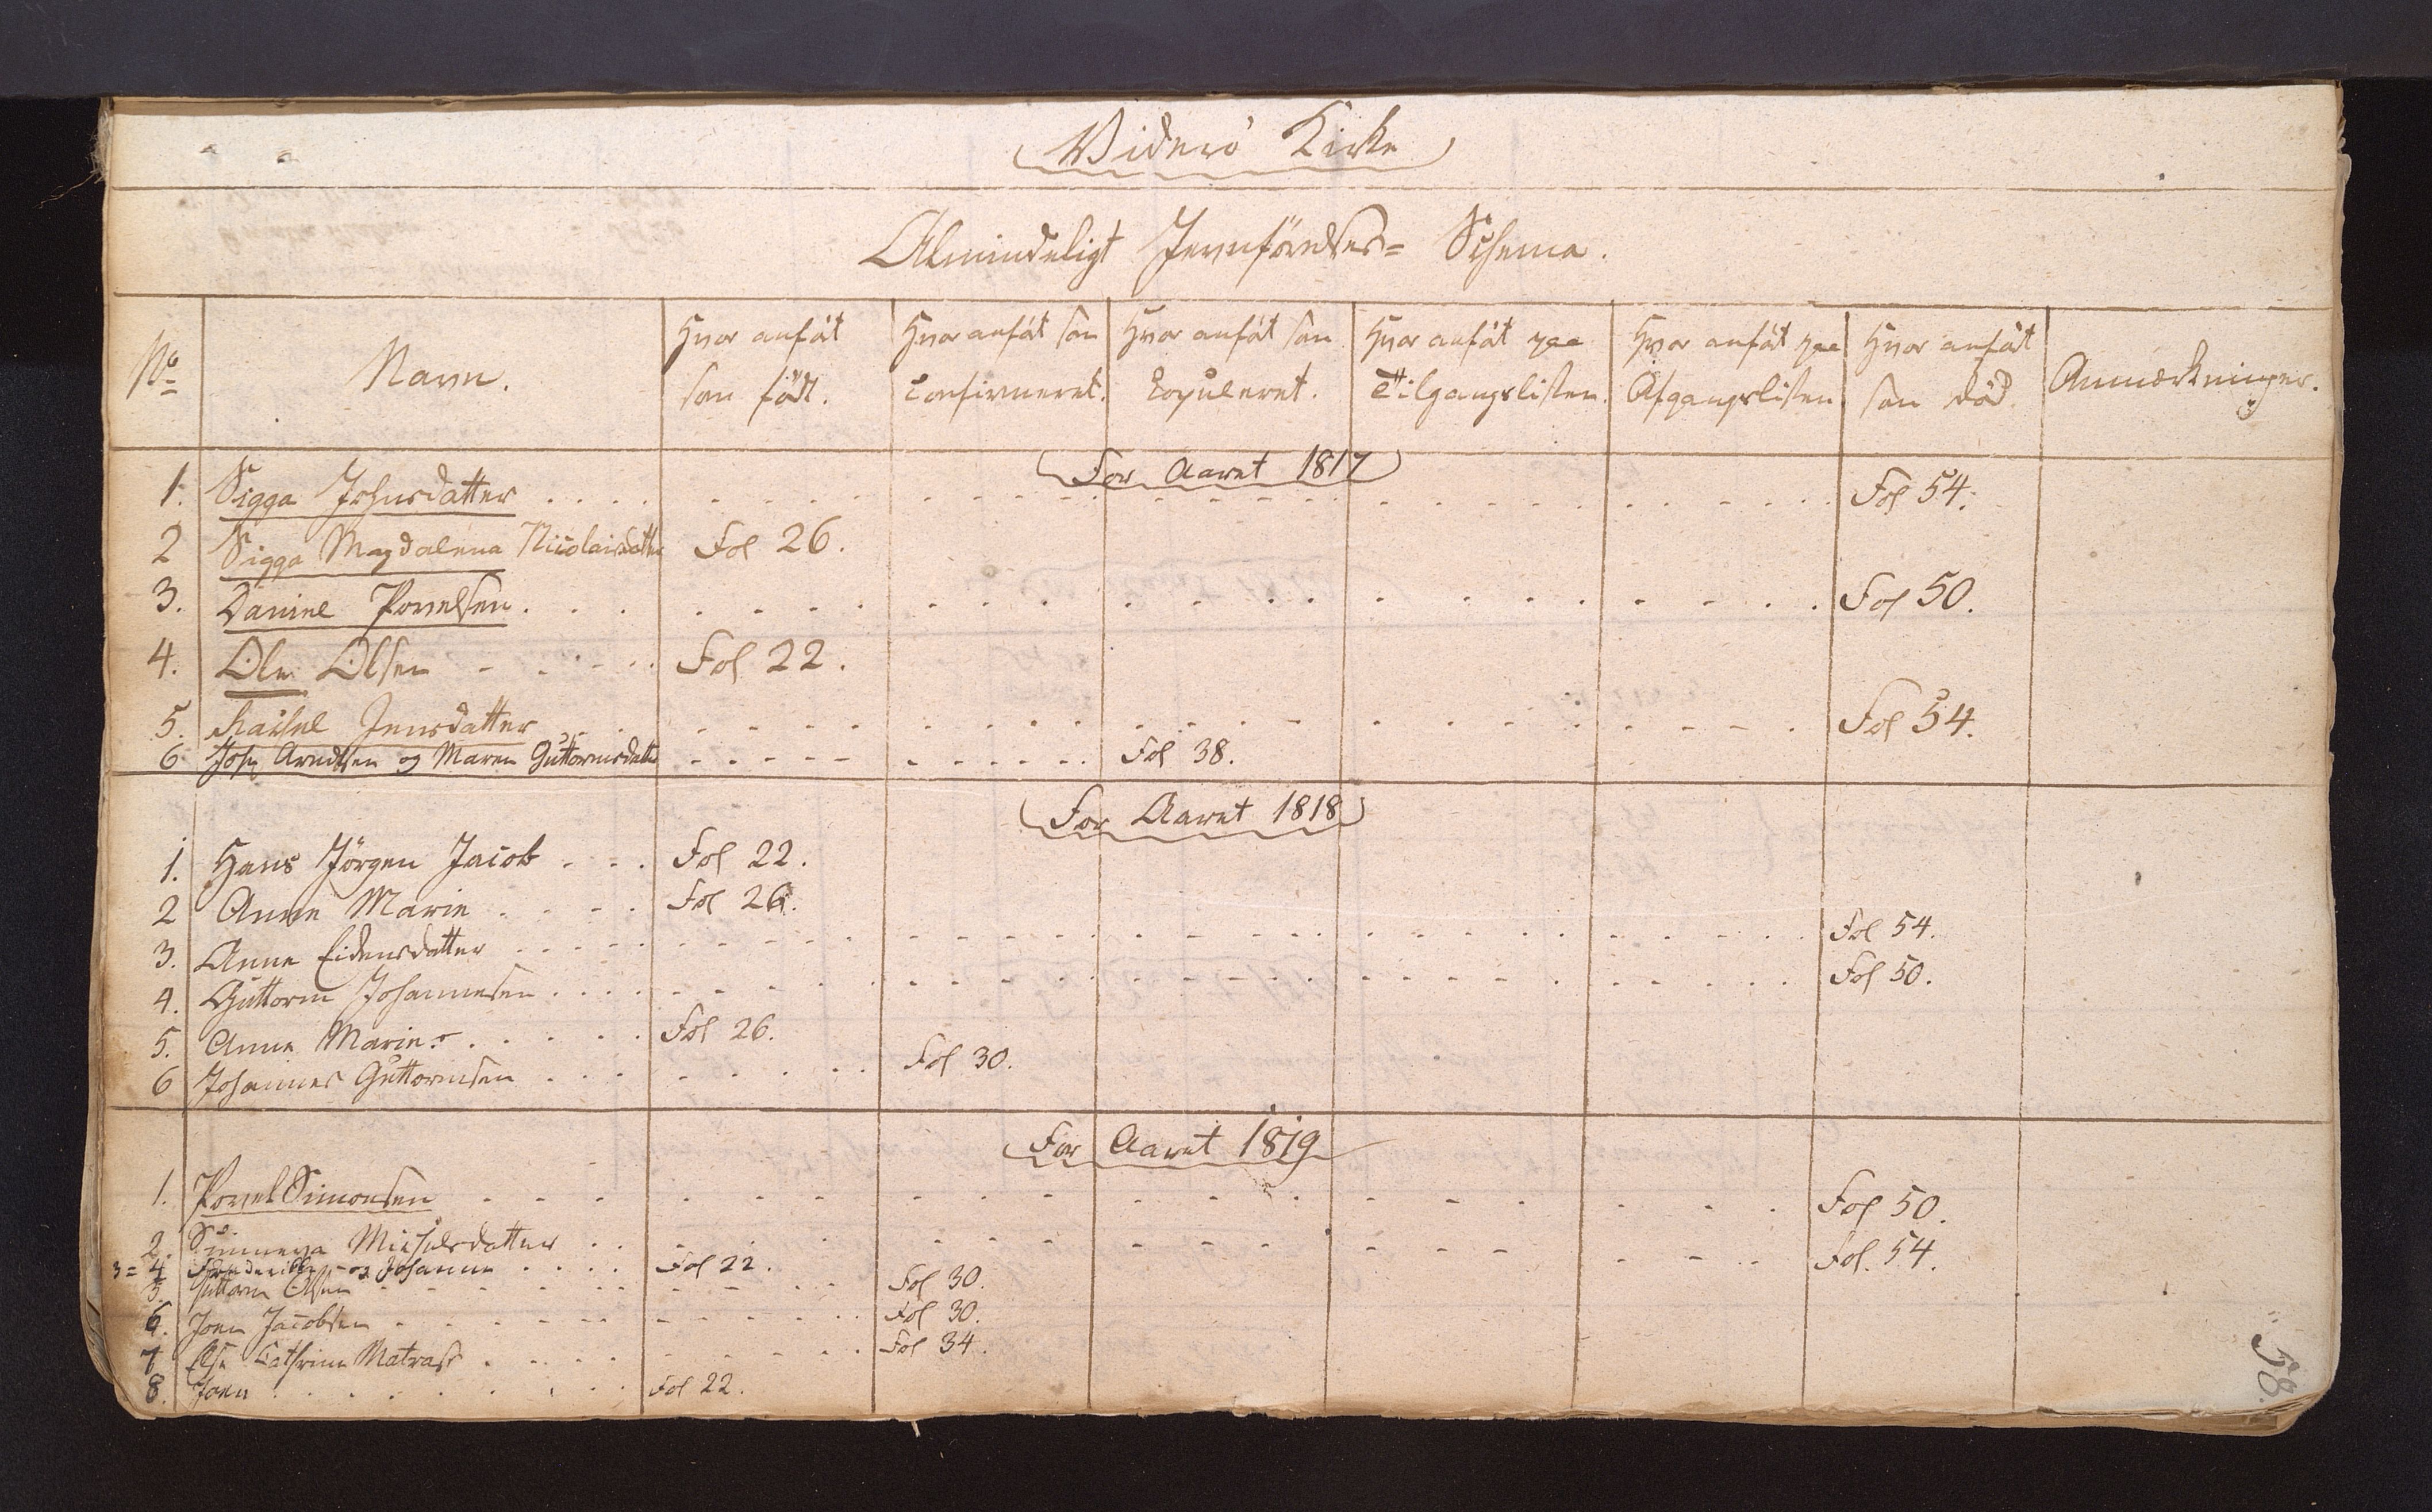 Viderö Kirke
Almindeligt Jevnförelses= Schema.
No
Navn.
Hvor anfört
som födt.
Hvor anfört som
Confirmeret.
Hvor anfört som
Copuleret.
Hvor anfört paa
Tilgangslisten.
Hvor anfört paa
Afgangslisten
Hvor anfört
som död
Anmærkninger.
For Aaret 1817
1. Sigga Johnsdatter . . . . Fol 54.
2 Sigga Magdalena Nicolaisdatter Fol 26.
3. Daniel Povelsen . . . Fol 50.
4. Ole Olsen - . - . . Fol 22.
5. Rachel Jensdatter . . Fol 54.
6 Joh Arndtsen og Maren Guttormsdatter - - - - - Fol 38.
For Aaret 1818
1. Hans Jörgen Jacob . - . Fol 22.
2 Anne Marie . . - . Fol 26.
3. Anne Eidensdatter . . . . . Fol 54.
4. Guttorm Johannesen . . . . Fol 50.
5. Anna Marie . . . . . Fol 26.
6 Johannes Guttormsen . . . . Fol 30.
For Aaret 1819
1. Povel Simonsen - - - Fol 50.
2. Sunneva Michelsdatter . . . Fol. 54.
3= 4 Friderikke og Johanne . . . . Fol 22.
5. Guttorm Olsen - - - - Fol 30.
6. Joen Jacobsen . - - - - Fol 30.
7. Else Cathrine Matras . . . . Fol 34.
8. Joen . . . . . . Fol 22.
58.